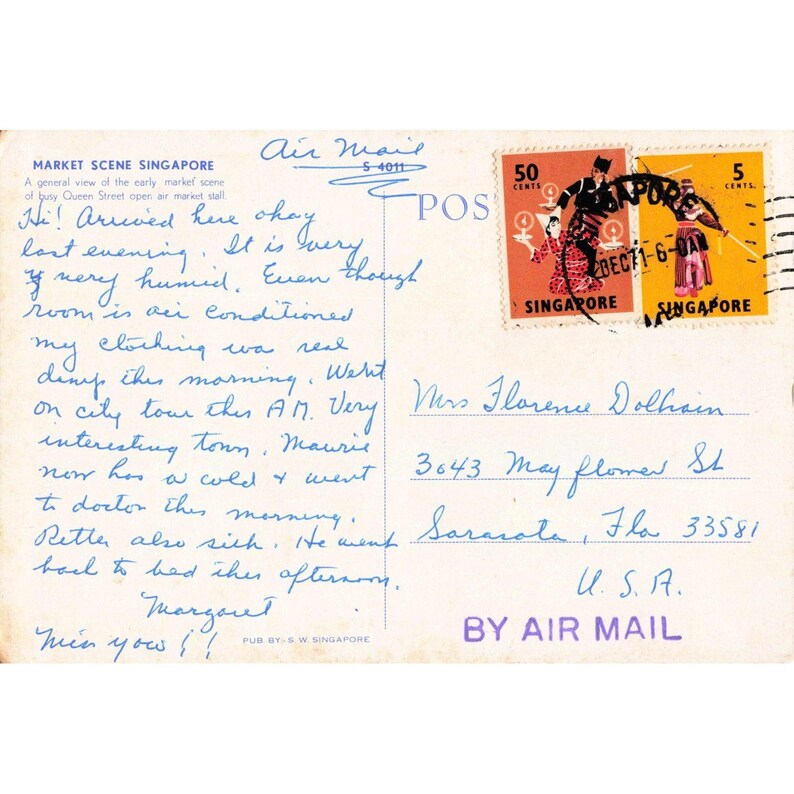 Air Mail
MARKET SCENE SINGAPORE
S 4011
A general view of the early market scene
of busy Queen Street open air market stall.
POS
Hi! Arrived here okay
last evening. It is very
very humid. Even though
room is air conditioned
my clothing was real
damp this morning. Went
on city tour this AM. Very
interesting town. Maurie
now has a cold & went
to doctor this morning.
also sick. He went
back to bed this afternoon.
Margaret
Miss you!!
PUB. BY. S. W. SINGAPORE
50
CENTS
SINGAPORE
5
CENTS
SINGAPORE
SINGAPORE
DEC71-6-
AM
Mrs Florence Dolhain
3043 Mayflower St
Sarasota, Fla 33581
U.S.A.
BY AIR MAIL